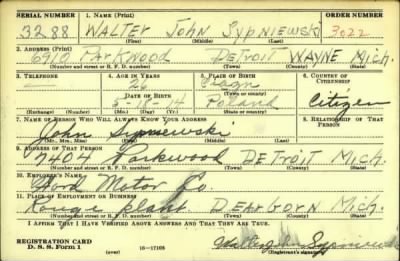 SERIAL NUMBER 1. NAME (Print) ORDER NUMBER
3288 WALTER JOHN SYPNIEWSKI 3022
(First) (Middle) (Last)
2. ADDRESS (Print)
6910 PARKWOOD DETROIT WAYNE Mich.
(Number and street or R. F. D. number) (Town) (County) (State)
3. TELEPHONE 4. AGE IN YEARS 5. PLACE OF BIRTH 6. COUNTRY OF CITIZENSHIP
— 26
(Town or county)
DATE OF BIRTH
5-18-14 Poland Citizen
(Exchange) (Number) (Mo.) (Day) (Yr.) (State or country)
7. NAME OF PERSON WHO WILL ALWAYS KNOW YOUR ADDRESS 8. RELATIONSHIP OF THAT PERSON
John Sypniewski
(Mr., Mrs., Miss) (First) (Middle) (Last)
9. ADDRESS OF THAT PERSON
7404 Parkwood DETROIT Mich.
(Number and street or R. F. D. number) (Town) (County) (State)
10. EMPLOYER'S NAME
Ford Motor Co.
11. PLACE OF EMPLOYMENT OR BUSINESS
Rouge plant. DEARGORN Mich.
(Number and street or R. F. D. number) (Town) (County) (State)
I AFFIRM THAT I HAVE VERIFIED ABOVE ANSWERS AND THAT THEY ARE TRUE.
REGISTRATION CARD
D. S. S. Form 1 (over) 16-17105 (Registrant's signature)